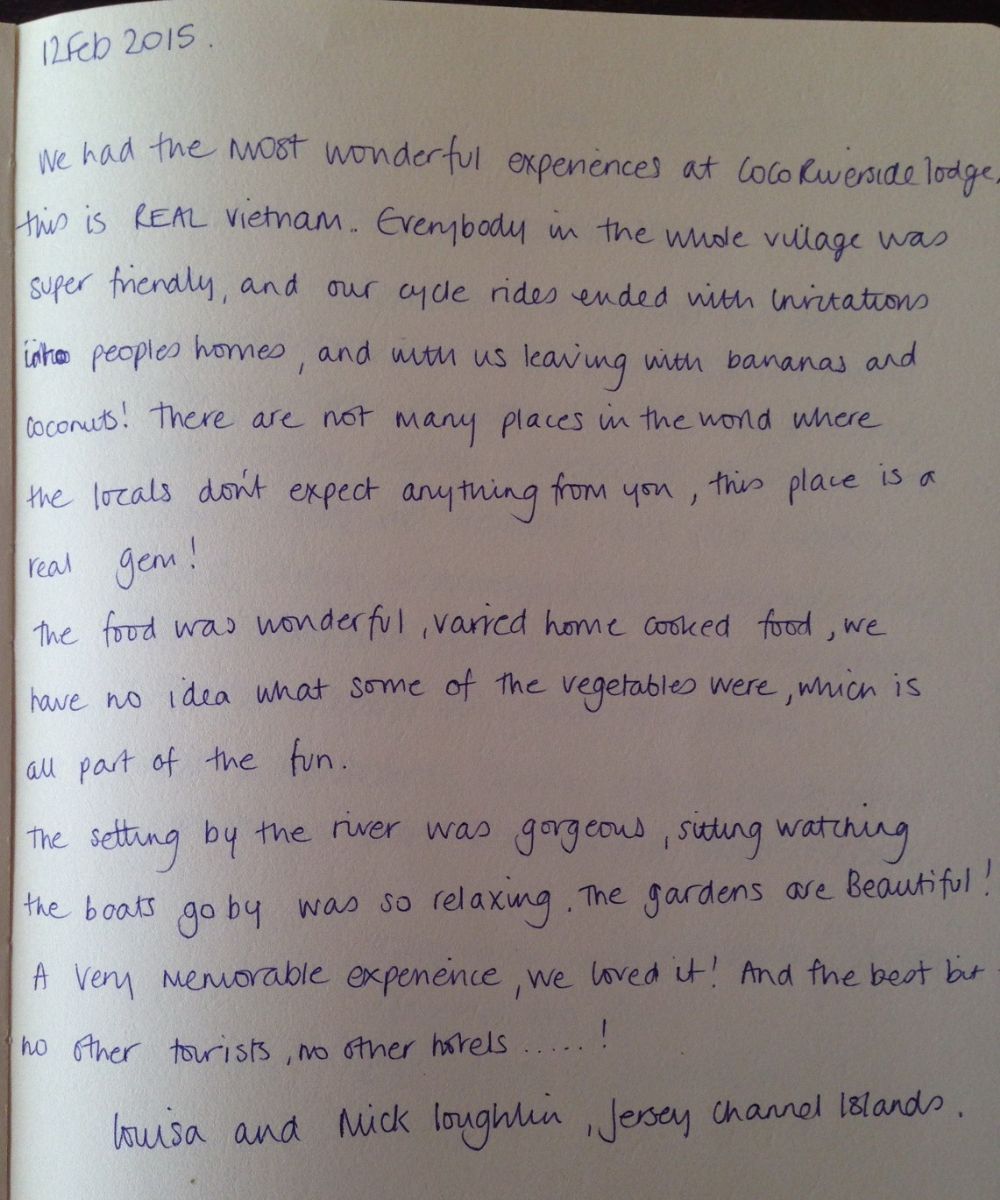 12 Feb 2015.
We had the most wonderful experiences at CoCo Riverside lodge,
this is REAL Vietnam. Everybody in the whole village was
super friendly, and our cycle rides ended with invitations
into peoples homes, and with us leaving with bananas and
coconuts! There are not many places in the world where
the locals don't expect anything from you, this place is a
real gem!
The food was wonderful, varied home cooked food, we
have no idea what some of the vegetables were, which is
all part of the fun.
The setting by the river was gorgeous, sitting watching
the boats go by was so relaxing. The gardens are Beautiful!
A very memorable experience, we loved it! And the best bit
no other tourists, no other hotels .....!
Louisa and Nick Loughlin, Jersey Channel Islands.